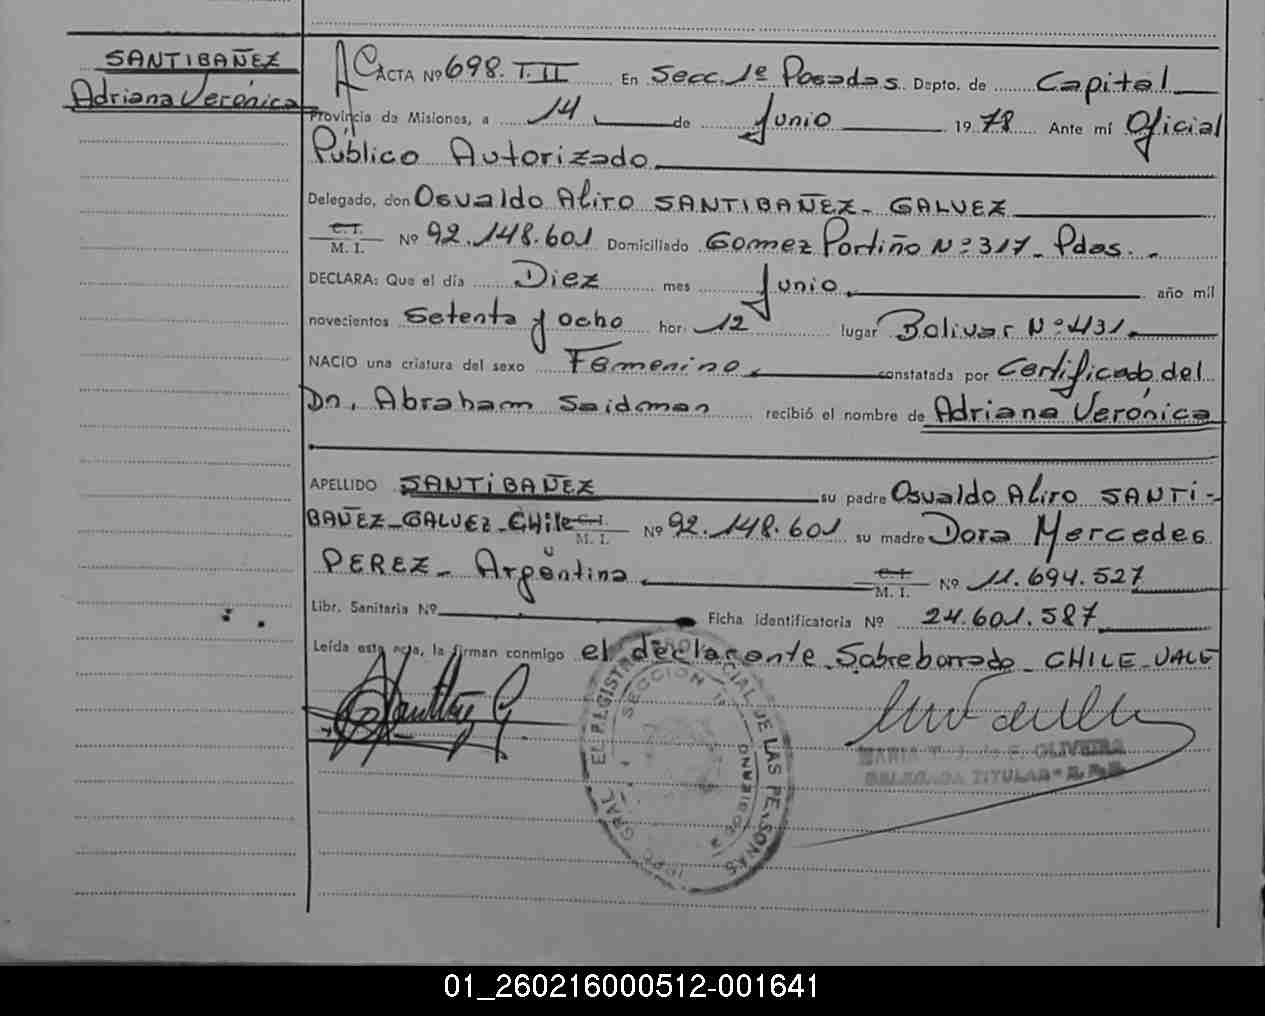 SANTIBAÑEZ
Adriana Verónica
ACTA Nº 698. T. II En Secc. 1º Posadas Dpto. de Capital
Provincia de Misiones, a 14 de Junio 1978 Ante mí Oficial
Público Autorizado
Delegado, don Osvaldo Aliro SANTIBAÑEZ - GALVEZ
C.I. M. I. Nº 92.148.601 Domiciliado Gomez Portiño Nº 317 - Pdas. -
DECLARA: Que el día Diez mes Junio año mil
novecientos Setenta y ocho hor. 12 lugar Bolivar Nº 431
NACIO una criatura del sexo Femenino constatada por Certificado del
Dn. Abraham Saidman recibió el nombre de Adriana Verónica
APELLIDO SANTIBAÑEZ su padre Osvaldo Aliro SANTI-
BAÑEZ - GALVEZ - CHile C.I. M. I. Nº 92.148.601 su madre Dora Mercedes
PEREZ - Argentina C.I. M. I. Nº 11.694.527
Libr. Sanitaria Nº Ficha Identificatoria Nº 24.601.587
Leída esta acta, la firman conmigo el declarante - Sobreborrado - CHILE - VALE
SECCION 1ª
DE LAS PERSONAS
OLIVEIRA
DELEGADA TITULAR
01_260216000512-001641